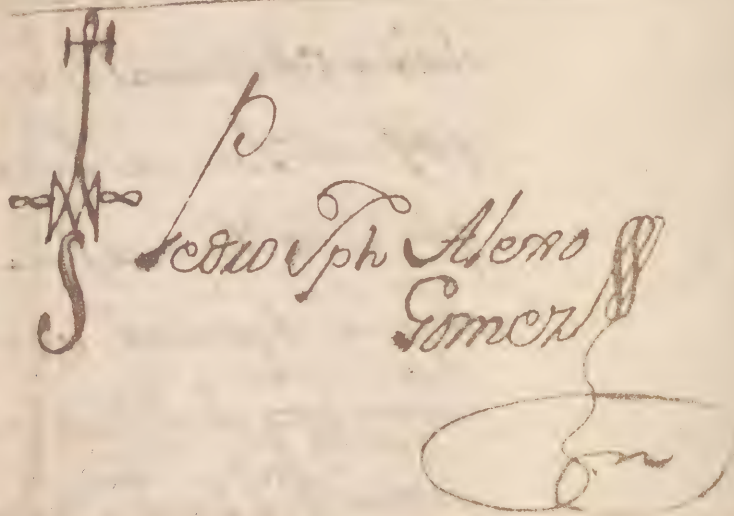 Pedro Jph Alerro
Gomez